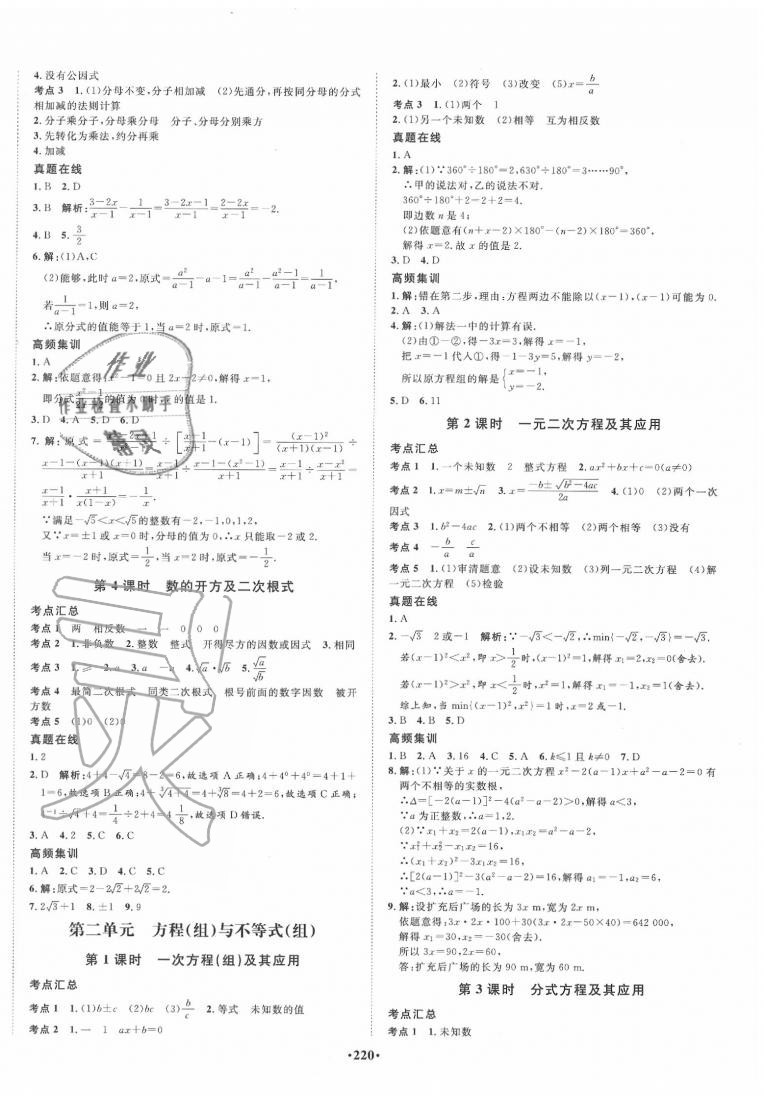 4. 没有公因式
考点 3　1. (1)分母不变,分子相加减　(2)先通分,再按同分母的分式
相加减的法则计算
2. 分子乘分子,分母乘分母　分子、分母分别乘方
3. 先转化为乘法,约分再乘
4. 加减
真题在线
1. B　2. D
3. B　解析: (3−2x)/(x−1) − 1/(x−1) = (3−2x−1)/(x−1) = (2−2x)/(x−1) = −2.
4. B　5. 3/2
6. 解: (1)A,C
(2)能够,此时 a=2,原式= a²/(a−1) −a−1= a²/(a−1) − (a²−1)/(a−1) = 1/(a−1).
若 1/(a−1) =1,则 a=2,
∴原分式的值能等于 1,当 a=2 时,原式=1.
高频集训
1. A
2. 解:依题意得 x²−1=0 且 2x−2≠0,解得 x=1,
的值为 0 时 x 的值是 1.
3. D　4. A　5. D　6. D
7. 解:原式= ÷[(x−1)/(x+1) −(x−1)]= (x−1)²/((x+1)(x−1)) ÷
(x−1−(x−1)(x+1))/(x+1) = (x−1)/(x+1) ÷ (x−1−(x²−1))/(x+1) = (x−1)/(x+1) ÷ (x−x²)/(x+1) =
(x−1)/(x+1) · (x+1)/(x(1−x)) = −1/x.
∵满足−√5<x<√5的整数有−2,−1,0,1,2,
又∵x=±1 或 x=0 时,分母的值为 0,∴x 只能取−2 或 2.
当 x=−2 时,原式= 1/2,当 x=2 时,原式=−1/2.
第 4 课时　数的开方及二次根式
考点汇总
考点 1　两　相反数　一　一　0　0　0
考点 2　1. 非负数　2. 整数　整式　开得尽方的因数或因式　3. 相同
考点 3　1. ≥　2. a　3. a　−a　4. √a·√b　5. √a/√b
考点 4　最简二次根式　同类二次根式　根号前面的数字因数　被开
方数
考点 5　(1)0　(2)0
真题在线
1. 2
2. D　解析:4+4−√4=8−2=6,故选项 A 正确;4+4⁰+4⁰=4+1+
1=6,故选项 B 正确;4+∛(4+4)=4+∛8=4+2=6,故选项 C 正确;
4⁻¹÷√4+4= 1/4 ÷2+4=4 1/8,故选项 D 错误.
3. A　4. 2　5. C　6. C
高频集训
1. A　2. C　3. D　4. B　5. C
6. 解:原式=2−2√2+2√2=2.
7. 2√3+1　8. ±1　9. 9
第二单元　方程(组)与不等式(组)
第 1 课时　一次方程(组)及其应用
考点汇总
考点 1　1. (1)b±c　(2)bc　(3) b/c　2. 等式　未知数的值
考点 2　1. 一　1　ax+b=0
2. (1)最小　(2)符号　(3)改变　(5)x= b/a
考点 3　1. (1)两个　1
2. (1)另一个未知数　(2)相等　互为相反数
真题在线
1. A
2. 解:(1)∵360°÷180°=2,630°÷180°=3……90°,
∴甲的说法对,乙的说法不对.
360°÷180°+2=2+2=4.
即边数 n 是 4;
(2)依题意有(n+x−2)×180°−(n−2)×180°=360°,
解得 x=2. 故 x 的值是 2.
3. D　4. D
高频集训
1. 解:错在第二步,理由:方程两边不能除以(x−1),(x−1)可能为 0.
2. A　3. A
4. 解:(1)解法一中的计算有误.
(2)由①−②,得−3x=3,解得 x=−1,
把 x=−1 代入①,得−1−3y=5,解得 y=−2.
所以原方程组的解是{x=−1, y=−2.
5. D　6. 11
第 2 课时　一元二次方程及其应用
考点汇总
考点 1　1. 一个未知数　2　整式方程　2. ax²+bx+c=0(a≠0)
考点 2　1. x=m±√n　3. x= (−b±√(b²−4ac))/2a　4. (1)0　(2)两个一次
因式
考点 3　1. b²−4ac　2. (1)两个不相等　(2)两个相等　(3)没有
考点 4　−b/a　c/a
考点 5　1. (1)审清题意　(2)设未知数　(3)列一元二次方程　(4)解
一元二次方程　(5)检验
真题在线
1. A
2. −√3　2 或−1　解析:∵−√3<−√2,∴min{−√2,−√3}=−√3.
若(x−1)²<x²,即 x>1/2时,(x−1)²=1,解得 x₁=2,x₂=0(舍去).
若(x−1)²>x²,即 x<1/2时,x²=1,解得 x₁=−1,x₂=1(舍去).
综上知,当 min{(x−1)²,x²}=1 时,x=2 或−1.
3. B　4. B　5. D
高频集训
1. B　2. A　3. 16　4. C　5. A　6. k≤1 且 k≠0　7. D
8. 解:(1)∵关于 x 的一元二次方程 x²−2(a−1)x+a²−a−2=0 有
两个不相等的实数根,
∴Δ=[−2(a−1)]²−4(a²−a−2)>0,解得 a<3,
∵a 为正整数,∴a=1,2.
(2)∵x₁+x₂=2(a−1),x₁x₂=a²−a−2,
∵x₁²+x₂²−x₁x₂=16,
∴(x₁+x₂)²−3x₁x₂=16,
∴[2(a−1)]²−3(a²−a−2)=16,解得 a₁=−1,a₂=6,
∵a<3,∴a=−1.
9. 解:设扩充后广场的长为 3x m,宽为 2x m,
依题意得:3x·2x·100+30(3x·2x−50×40)=642 000,
解得 x₁=30,x₂=−30(舍去).
所以 3x=90,2x=60,
答:扩充后广场的长为 90 m,宽为 60 m.
第 3 课时　分式方程及其应用
考点汇总
考点 1　1. 未知数
·220·
作业
作业检查小助手